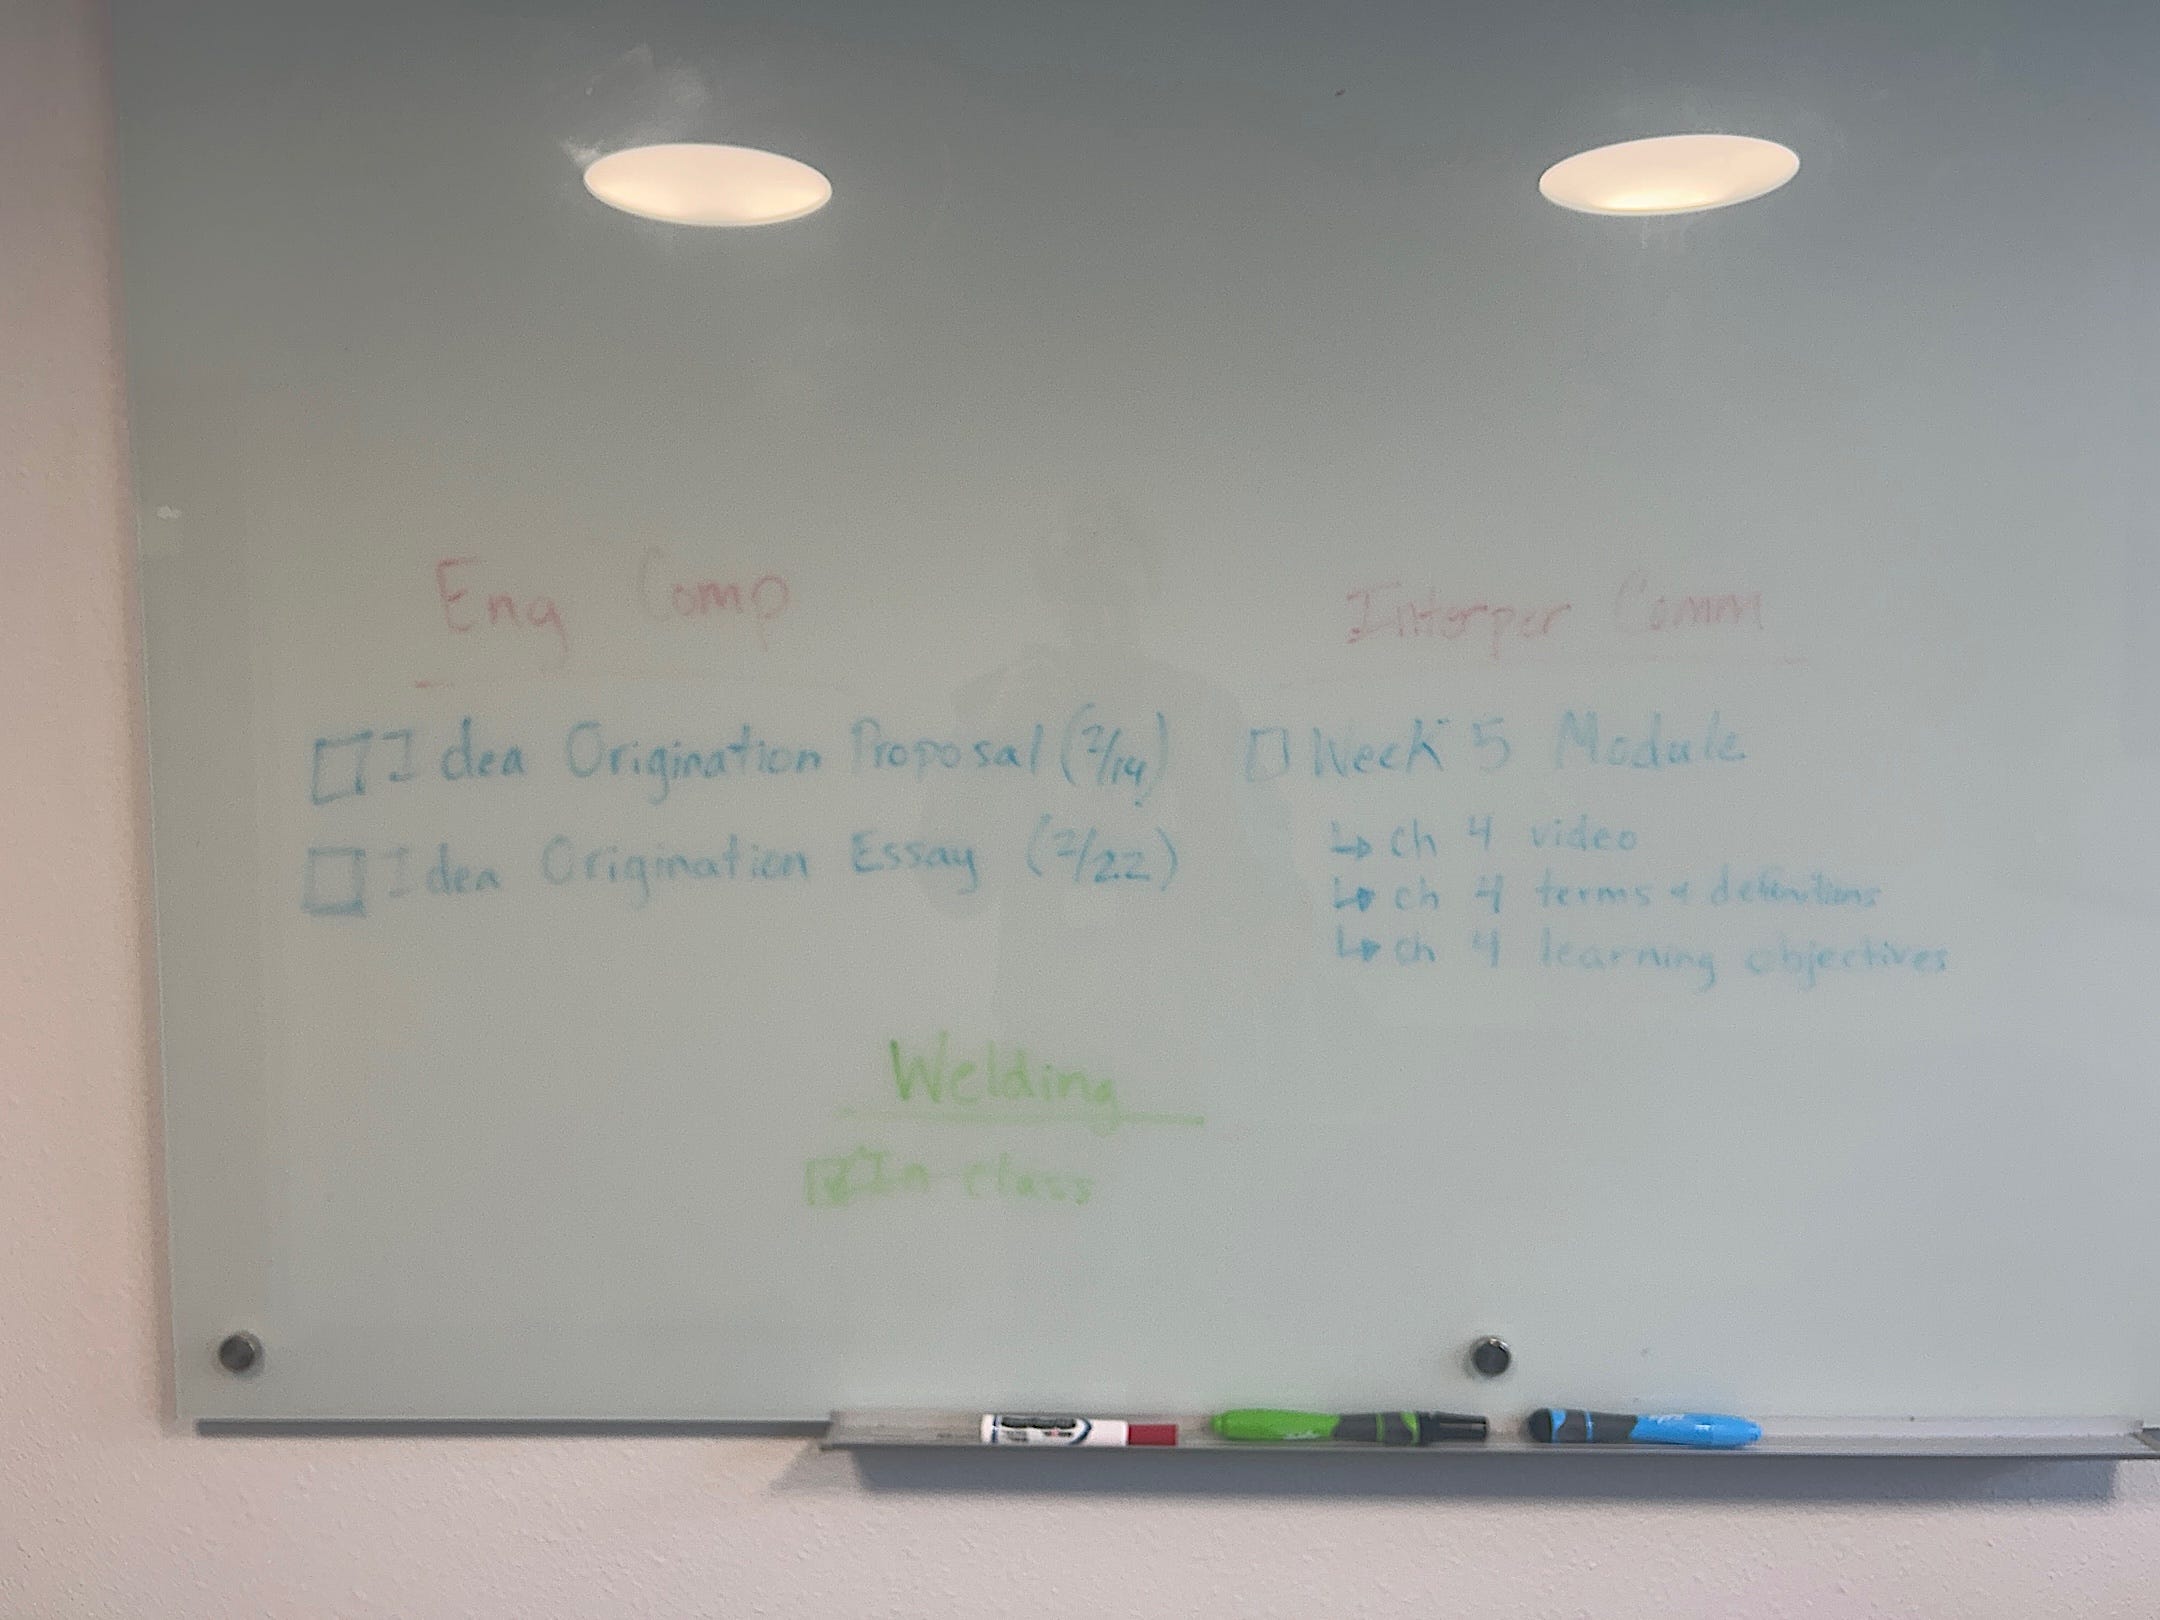 Eng Comp
Idea Origination Proposal (2/14)
Idea Origination Essay (2/22)
Interper Comm
Week 5 Module
↳ ch 4 video
↳ ch 4 terms & definitions
↳ ch 4 learning objectives
Welding
In class